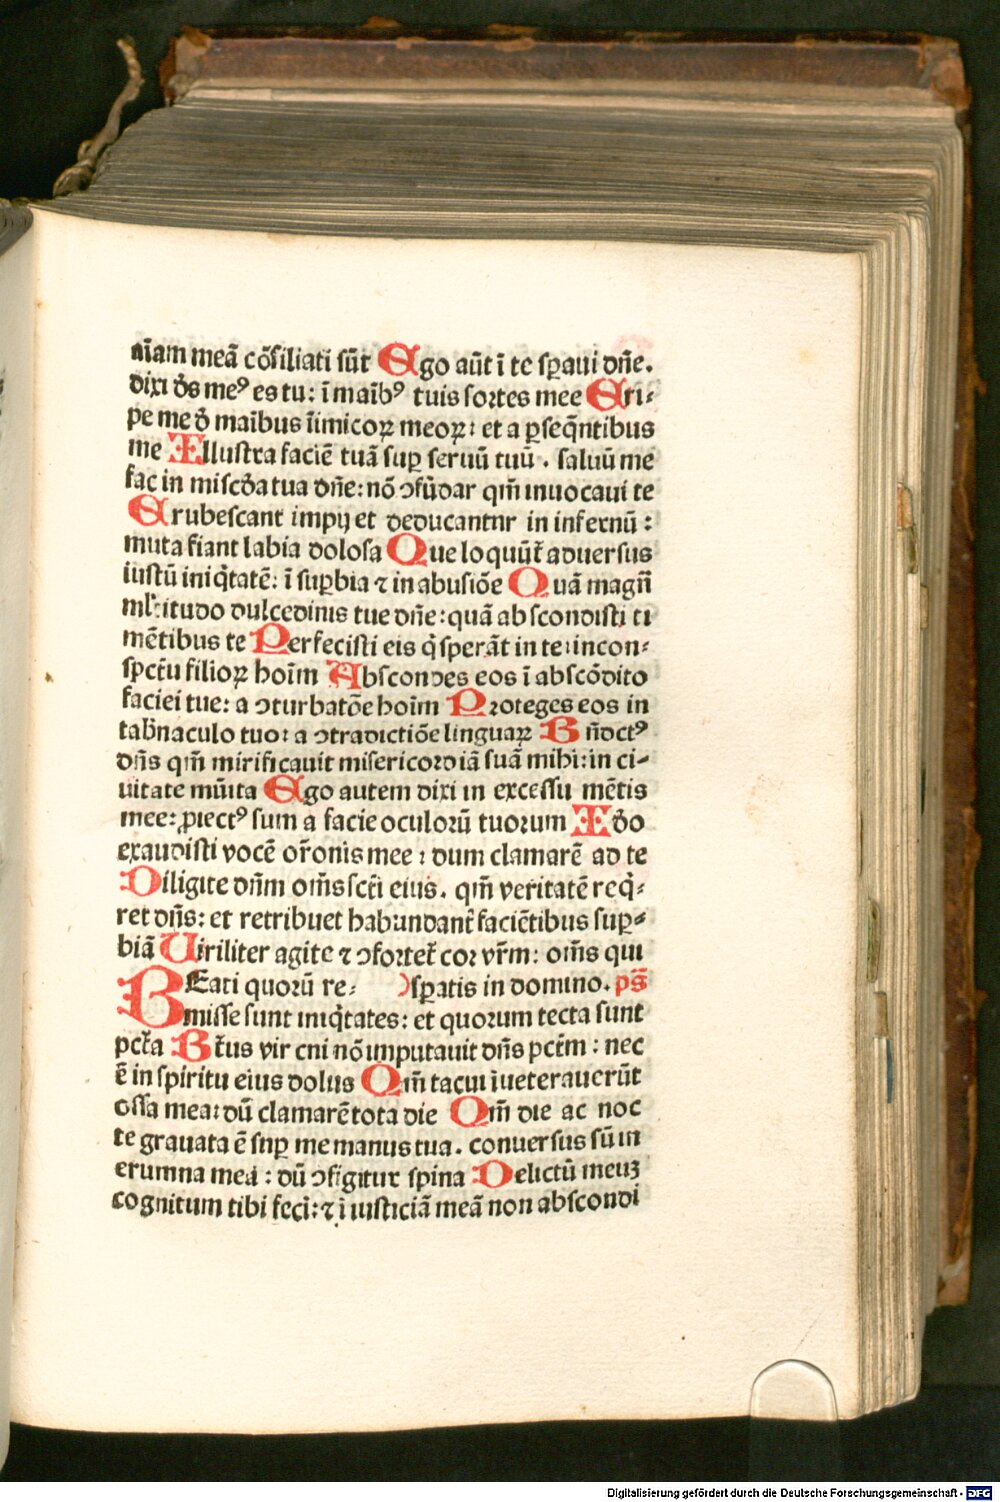 aīam meā cōsiliati sūt Ego aūt ī te sꝑaui dn̄e.
dixi ds̄ meꝰ es tu: ī maībꝰ tuis sortes mee Eri⸗
pe me d̄ maībus īimicoꝝ meoꝝ: et a ꝑseq̄ntibus
me Illustra faciē tuā suꝑ seruū tuū . saluū me
fac in miscd̄a tua dn̄e: nō ↄfūdar qm̄ inuocaui te
Erubescant impij et deducantnr in infernū :
muta fiant labia dolosa Que loquūt̄ aduersus
iustū iniq̄tatē: ī suꝑbia ⁊ in abusiōe Quā magn̄
ml̄titudo dulcedinis tue dn̄e: quā abscondisti ti
mētibus te Perfecisti eis q̄ sperāt in te: incon⸗
spectu filioꝝ hoīm Abscondes eos ī abscōdito
faciei tue: a ↄturbatōe hoīm Proteges eos in
tab̄naculo tuo: a ↄtradictiōe linguaꝝ Bn̄dctꝰ
dn̄s qm̄ mirificauit misericordiā suā mihi: in ci⸗
uitate mūita Ego autem dixi in excessu mētis
mee: ꝓiectꝰ sum a facie oculorū tuorum Id̄o
exaudisti vocē or̄onis mee : dum clamarē ad te
Diligite dn̄m om̄s sct̄i eius . qm̄ veritatē req̄⸗
ret dn̄s: et retribuet habundant̄ faciētibus suꝑ⸗
biā Uiriliter agite ⁊ ↄfortet̄ cor vr̄m: om̄s qui
BEati quorū re⸗ )sꝑatis in domino. ps̄
misse sunt iniq̄tates: et quorum tecta sunt
pct̄a Bt̄us vir cni nō imputauit dn̄s pct̄m : nec
ē in spiritu eius dolus Qm̄ tacui īueterauerūt
ossa mea: dū clamarē tota die Qm̄ die ac noc
te grauata ē suꝑ me manus tua . conuersus sū in
erumna mea : dū ↄfigitur spina Delictū meuꝫ
cognitum tibi feci: ⁊ ī iusticiā meā non abscondi
Digitalisierung gefördert durch die Deutsche Forschungsgemeinschaft - DFG